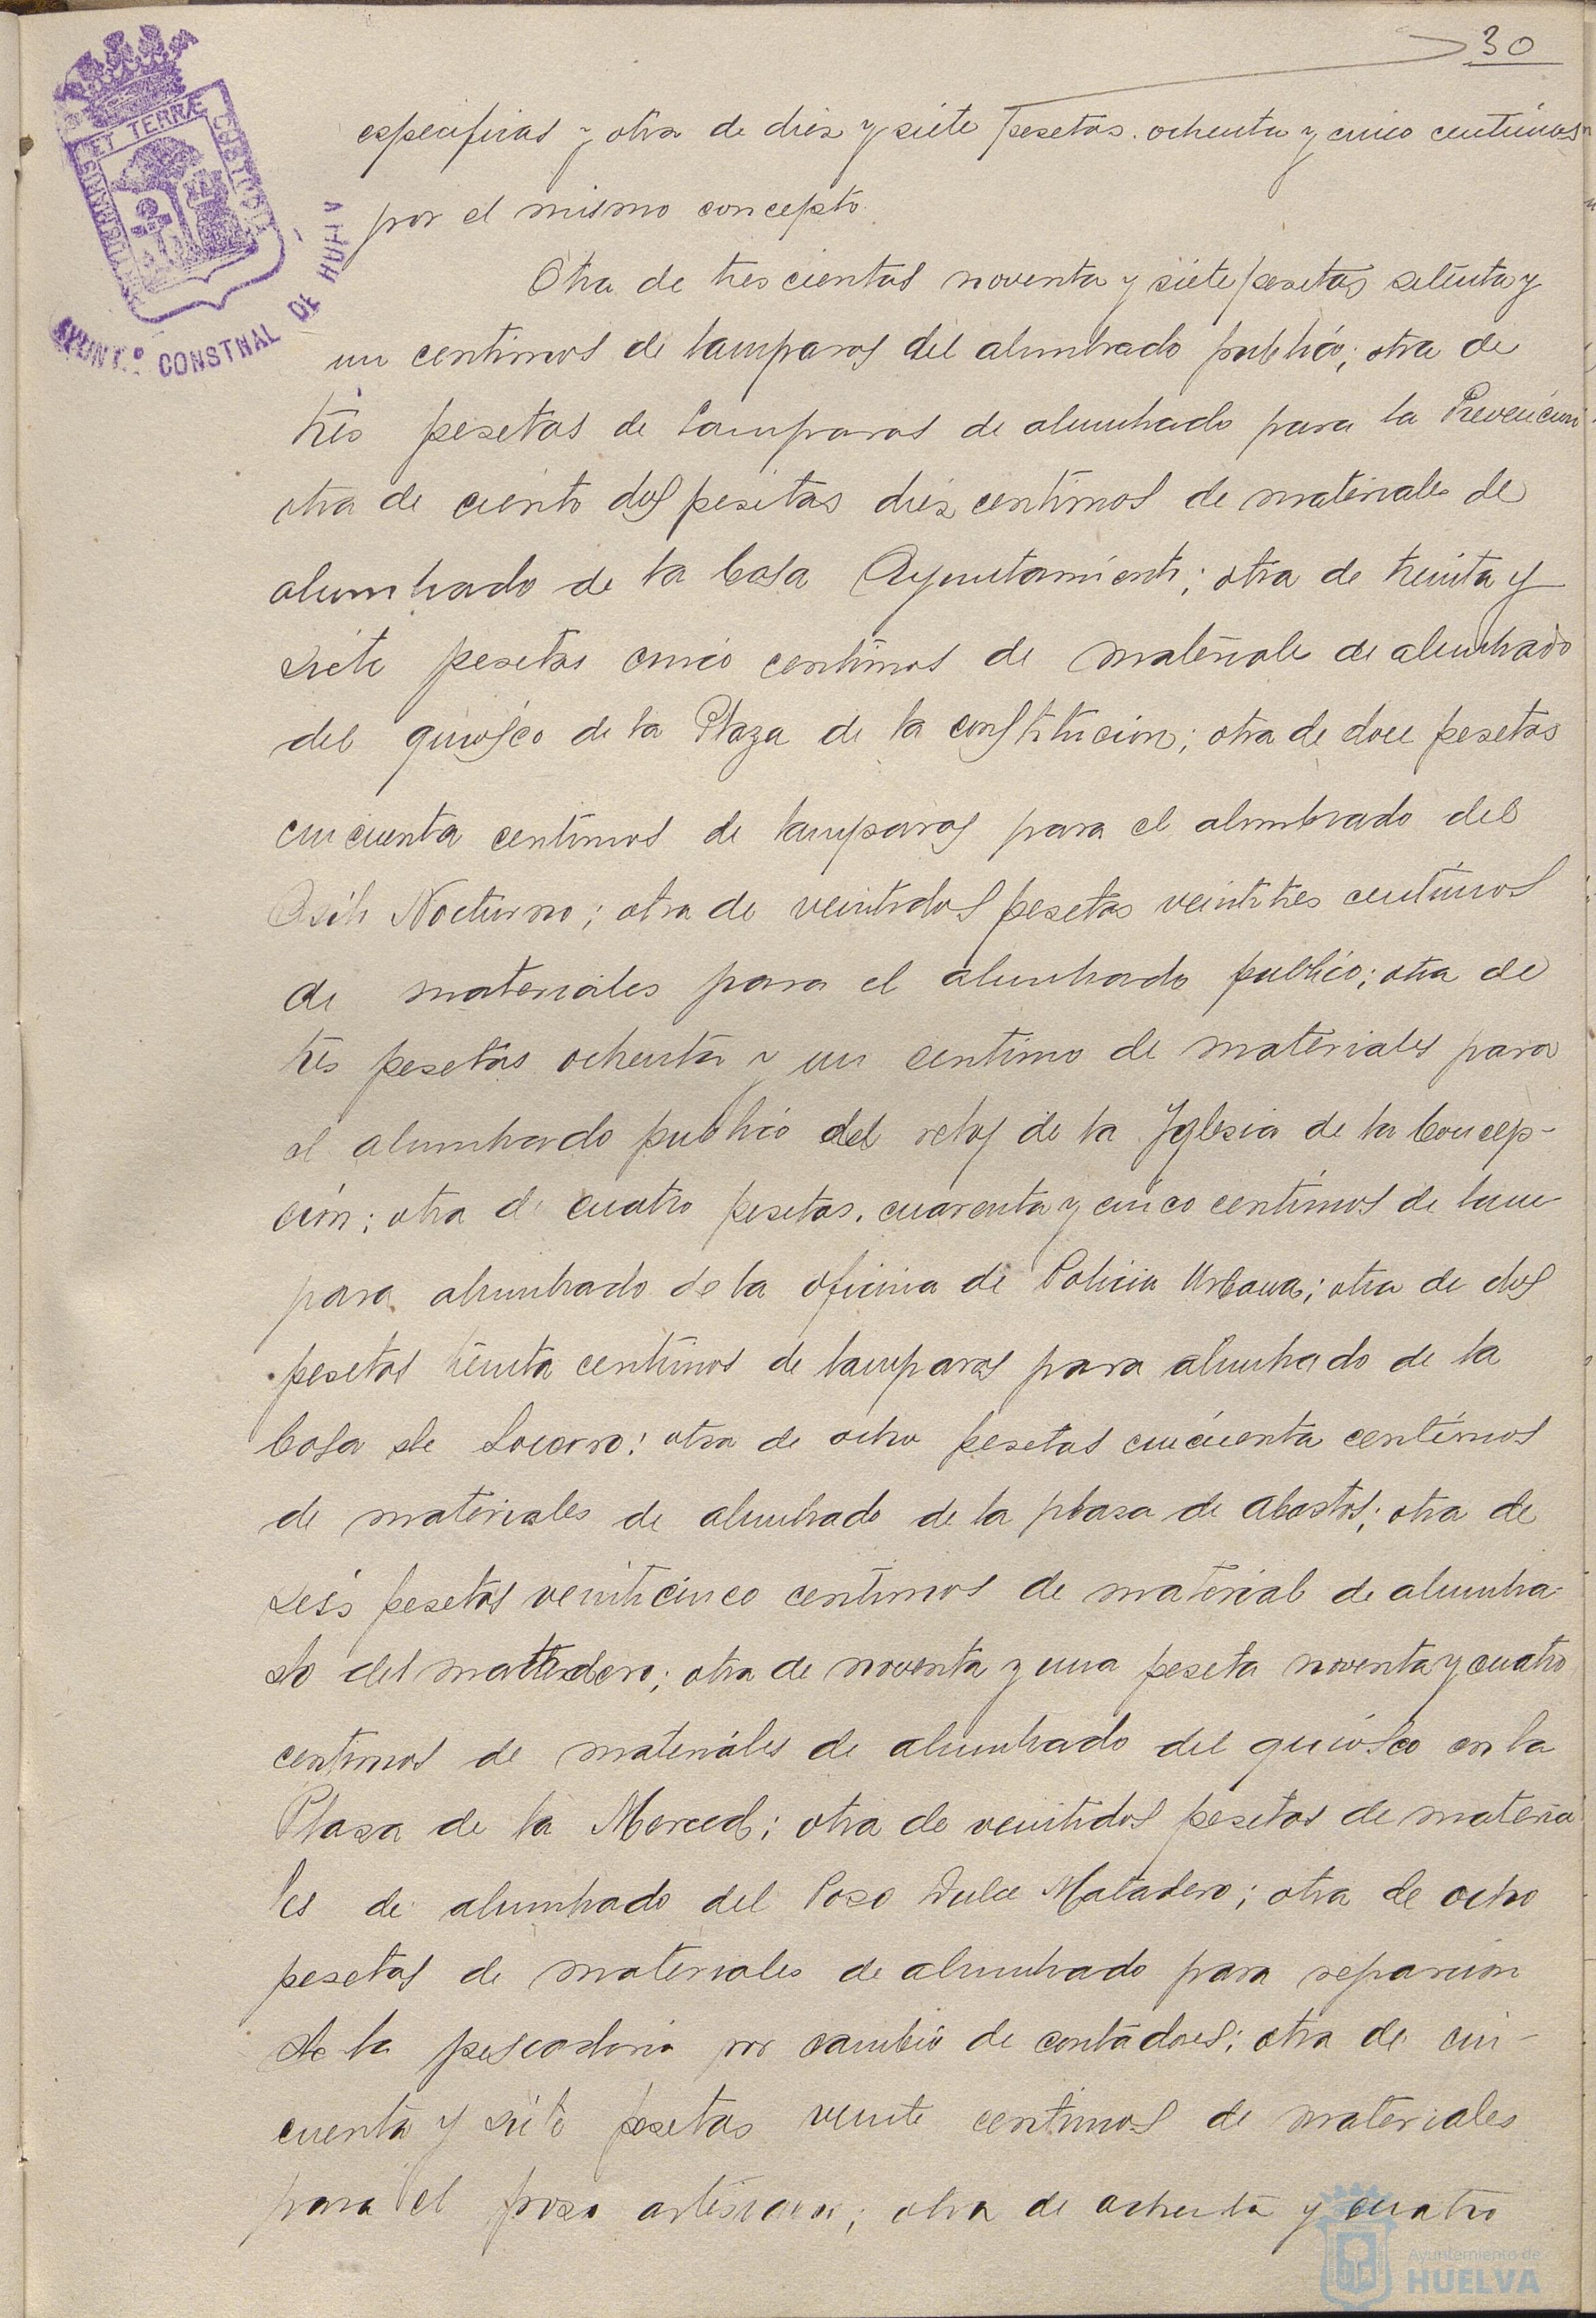 30
especificas y otra de diez y siete pesetas ochenta y cinco centimos
por el mismo concepto.
Otra de trescientas noventa y siete pesetas setenta y
un centimos de lamparas del alumbrado publico; otra de
tres pesetas de lamparas de alumbrado para la Prevencion
otra de ciento dos pesetas diez centimos de materiales de
alumbrado de la Casa Ayuntamiento; otra de treinta y
siete pesetas cinco centimos de materiales de alumbrado
del quiosco de la Plaza de la constitucion; otra de doce pesetas
cincuenta centimos de lamparas para el alumbrado del
Asilo Nocturno; otra de veintidos pesetas veintitres centimos
de materiales para el alumbrado publico; otra de
tres pesetas ochenta y un centimo de materiales para
el alumbrado publico del reloj de la Yglesia de la Concep-
cion; otra de cuatro pesetas, cuarenta y cinco centimos de lam-
para alumbrado de la oficina de Policia Urbana; otra de dos
pesetas treinta centimos de lamparas para alumbrado de la
Casa de Socorro; otra de ocho pesetas cincuenta centimos
de materiales de alumbrado de la plaza de abastos; otra de
seis pesetas veinticinco centimos de material de alumbra-
do del matadero; otra de noventa y una peseta noventa y cuatro
centimos de materiales de alumbrado del quiosco en la
Plaza de la Merced; otra de veintidos pesetas de materia
les de alumbrado del Poso Dulce Matadero; otra de ocho
pesetas de materiales de alumbrado para reparcion
de la pescaderia por cambio de contadores; otra de cin-
cuenta y siete pesetas veinte centimos de materiales
para el poso artesiano; otra de ochenta y cuatro
ET TERRÆ CUSTODIA
AYUNT.º CONSTNAL DE HUELV
Ayuntamiento de
HUELVA